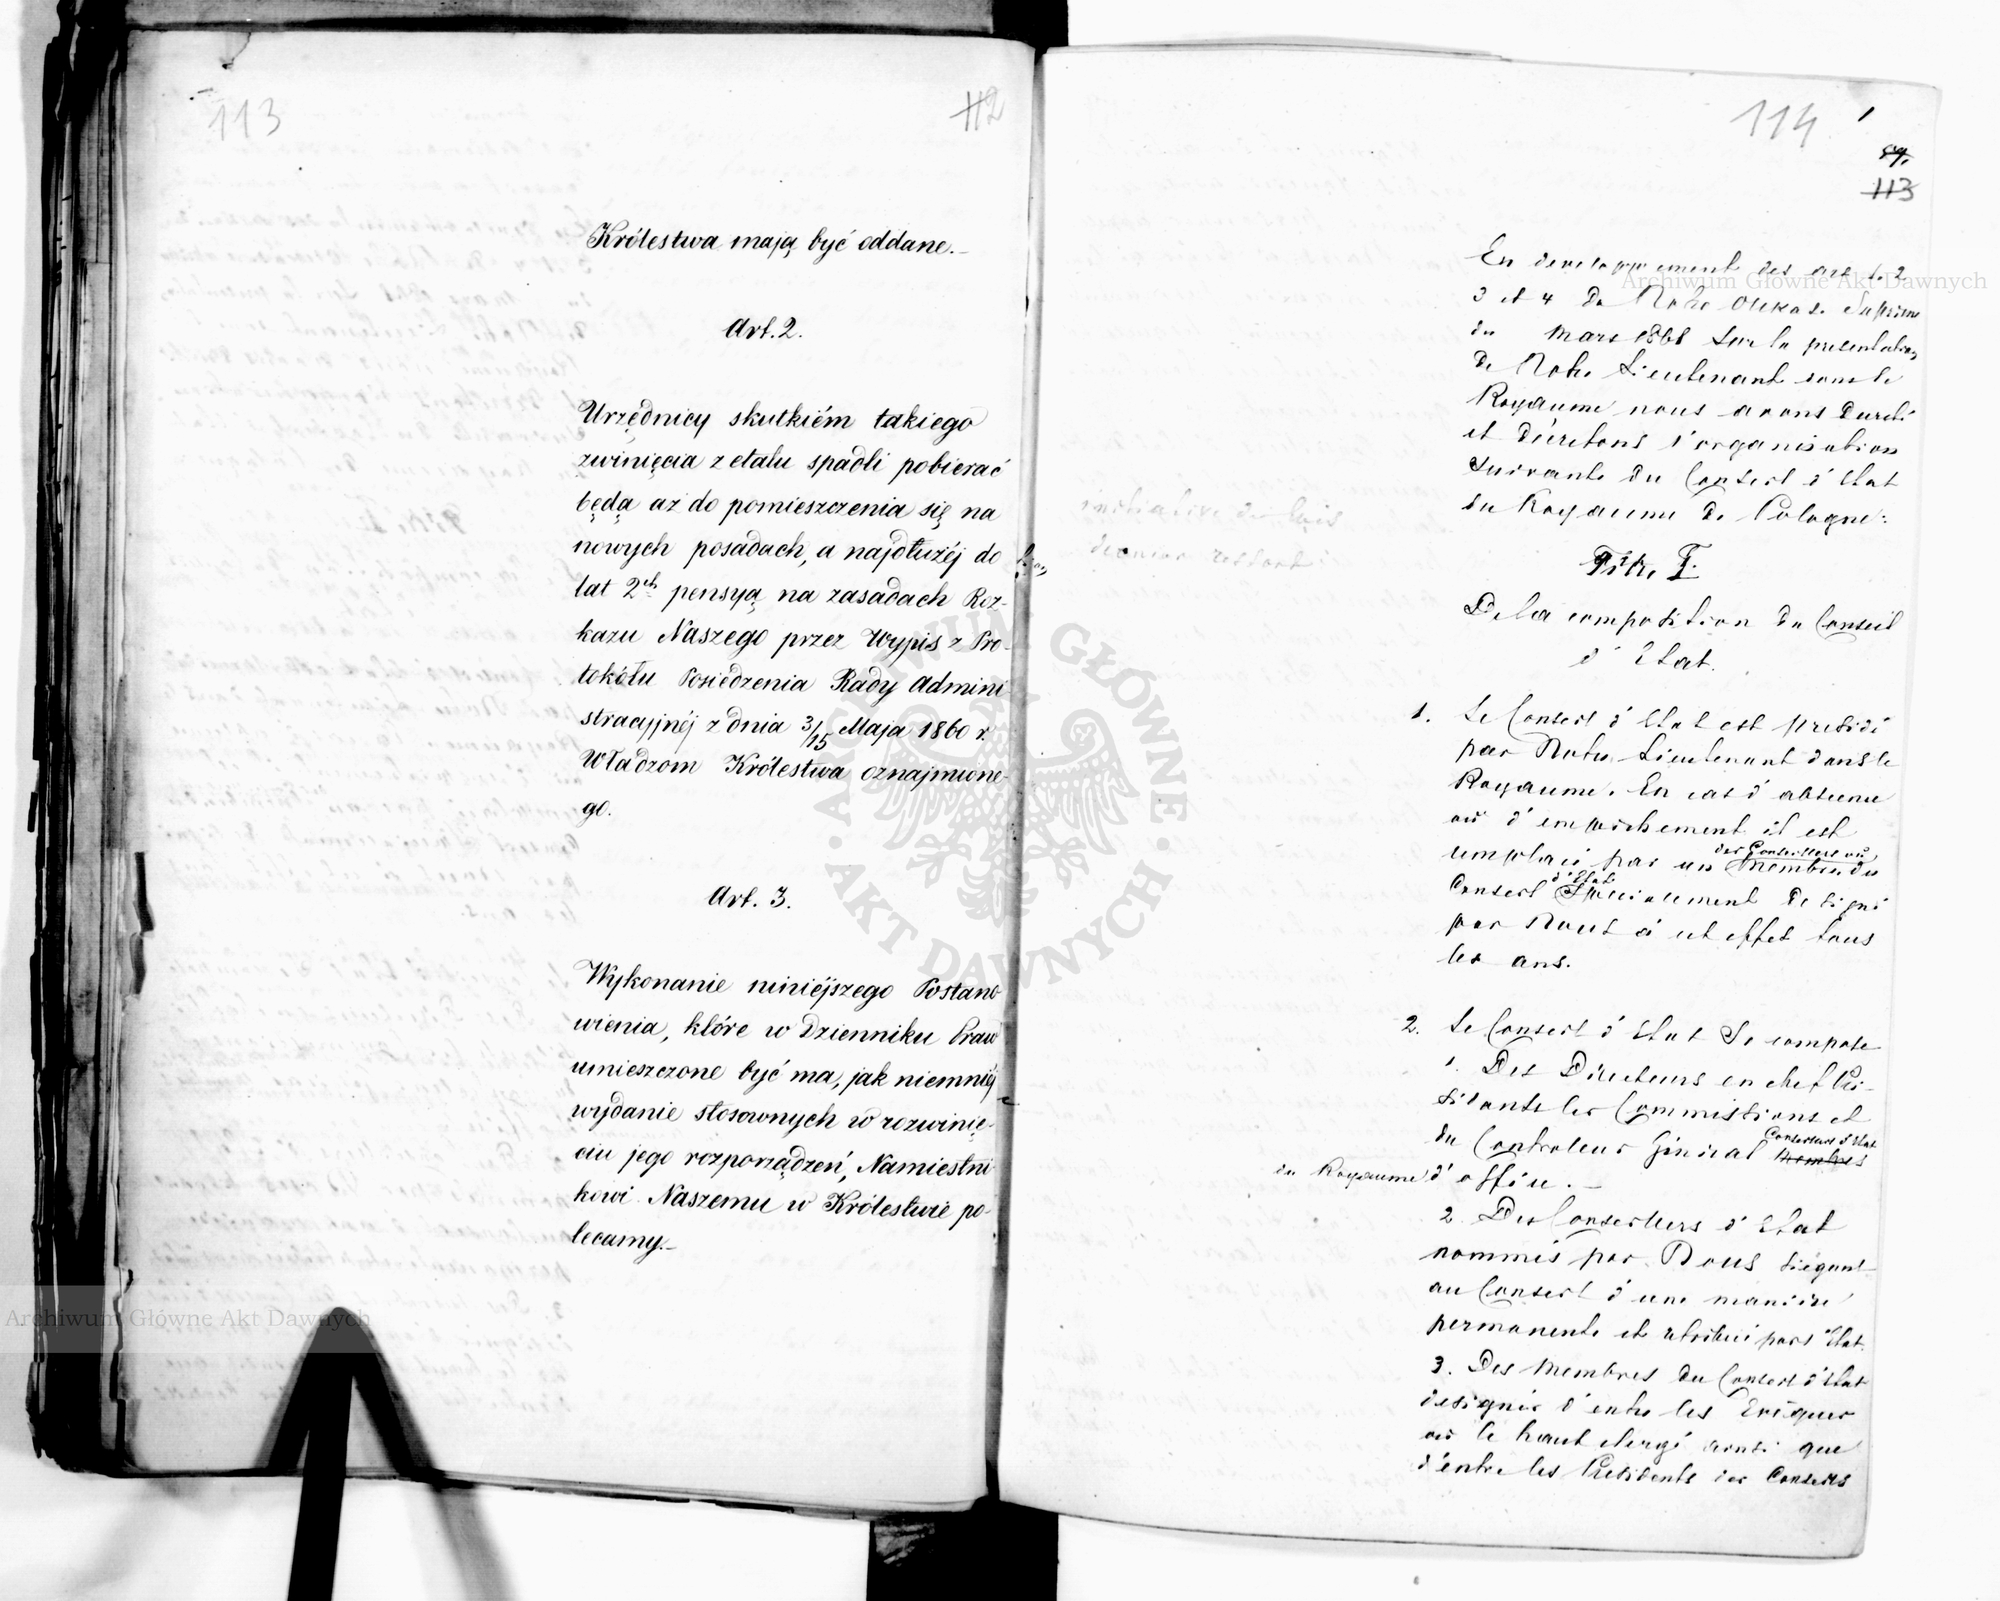 113
112
Królestwa mają być oddane.
Art. 2.
Urzędnicy skutkiém takiego
zwinięcia z etatu spadli pobierać
będą aż do pomieszczenia się na
nowych posadach, a najdłużéj do
lat 2ch pensyą na zasadach Roz-
kazu Naszego przez Wypis z Pro-
tokółu Posiedzenia Rady Admini
stracyjnéj z dnia 3/15 Maja 1860 r.
Władzom Królestwa oznajmione-
go.
Art. 3.
Wykonanie niniéjszego Postano
wienia, które w Dzienniku Praw
umieszczone być ma, jak niemniéj
wydanie stosownych w rozwinię-
ciu jego rozporządzeń, Namiestni
kowi Naszemu w Królestwie po-
lecamy.
114
113
En developpement des art 1. 2
3 et 4 de Notre Oukase Suprême
du Mars 1861 sur la presentation
de Notre Lieutenant dans le
Royaume nous avons
et décretons l'organisation
suivante du Conseil d'Etat
du Royaume de Pologne:
initiative de lois
dernier ressort
Titre I.
De la composition du Conseil
d'Etat.
1. Le Conseil d'Etat est présidé
par Notre Lieutenant dans le
Royaume. En cas d'absence
ou d'empêchement il est
remplacé par un des Conseillers ou Membre du
Conseil d'Etat Specialement designé
par Nous à cet effet tous
les ans.
2. Le Conseil d'Etat se compose
1. Des Directeurs en chef Pré-
sidants les Commissions et
du Controleur Général Conseillers d'Etat Membres
du Royaume d'office.
2. Des Conseillers d'Etat
nommés par Nous siégant
au Conseil d'une manière
permanente et rétribué par l'Etat.
3. Des Membres du Conseil d'Etat
designés d'entre les Evêques
ou le haut clergé ainsi que
d'entre les Présidents des Conseils
Archiwum Główne Akt Dawnych
Archiwum Główne Akt Dawnych
ARCHIWUM GŁÓWNE AKT DAWNYCH